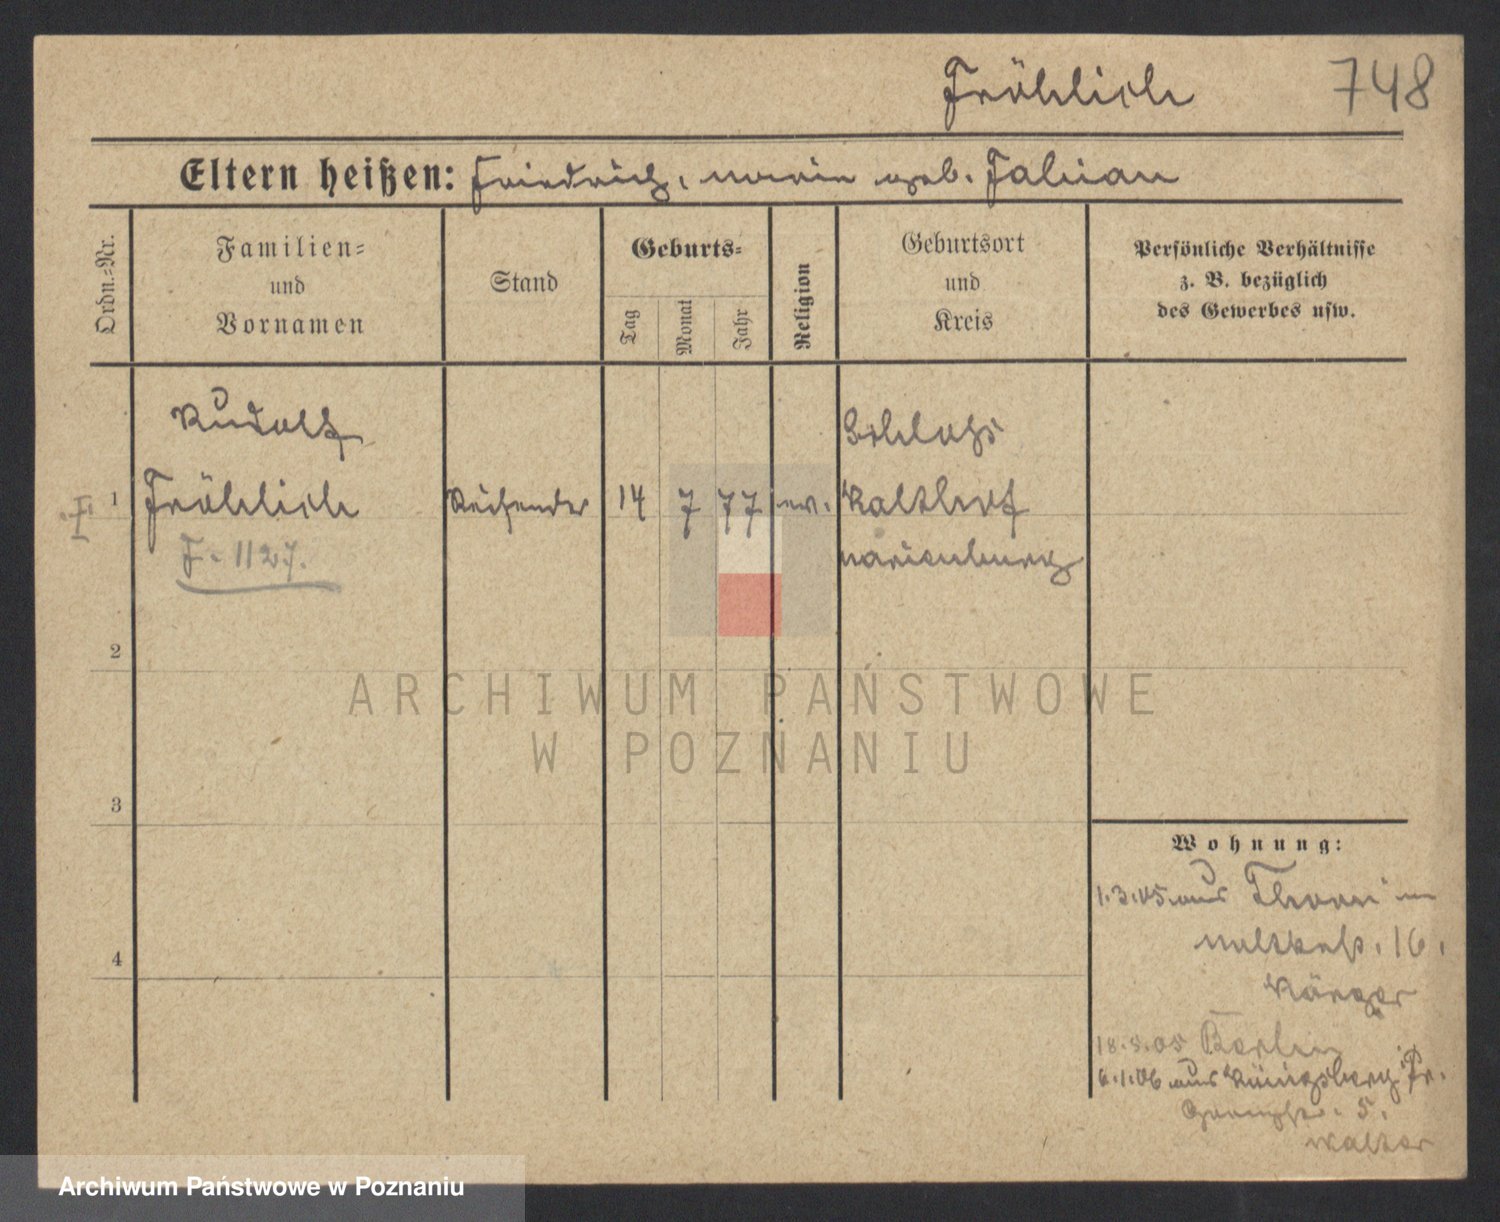 Fröhlich 748
Eltern heißen: Friedrich, Marie geb. Fabian
Ordn.=Nr.
Familien=
und
Vornamen
Stand
Geburts=
Tag
Monat
Jahr
Religion
Geburtsort
und
Kreis
Persönliche Verhältnisse
z. B. bezüglich
des Gewerbes usw.
Rudolf Schloss
1 Fröhlich Reisender 14 7 77 ev. Kalthof
F. 1127. Marienburg
2
3
4
Wohnung:
1.3.05 aus Thorn in
16.
18.5.05 Berlin
6.1.06 aus Königsberg Pr.
5.
Walter
ARCHIWUM PAŃSTWOWE
W POZNANIU
Archiwum Państwowe w Poznaniu